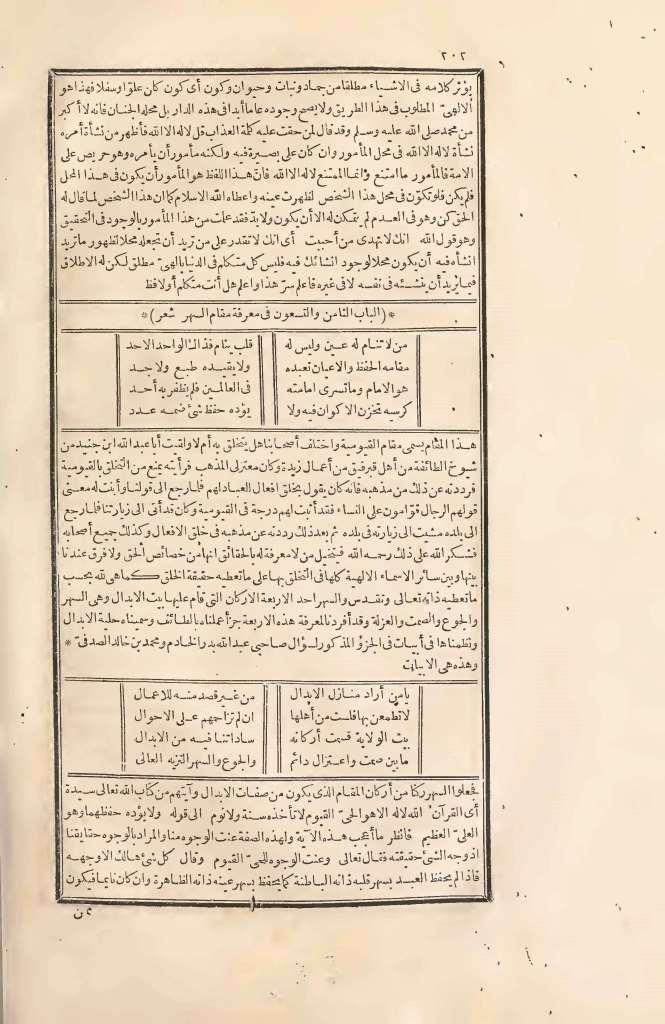 ٢٠٢
يؤثر كلامه فى الاشياء مطلقا من جماد ونبات وحيوان وكون أى كون كان علوا وسفلا فهذا هو
الالهىّ المطلوب فى هذا الطريق ولا يصح وجوده عاما أبدا فى هذه الدار بل محله الجنان فانه لا أكبر
من محمد صلى الله عليه وسلم وقد قال لمن حقت عليه كلمة العذاب قل لا اله الا الله فأظهر من نشأة أمره
نشأة لا اله الا الله فى محل المأمور وان كان على بصيرة فيه ولكنه مأمور أن يأمره وهو حريص على
الامة فالمأمور ما امتنع وانما الممتنع لا اله الا الله فان هذا اللفظ هو المأمور أن يكون فى هذا المحل
فلم يكن فلو تكوّن فى محل هذا الشخص لظهرت عينه وأعطاه الله الاسلام كما ان هذا الشخص لما قال له
الحق كن وهو فى العدم لم يتمكن له الا أن يكون ولا بدّ فقد علمت من هذا المأمور بالوجود فى التحقيق
وهو قول الله انك لا تهدى من أحببت أى انك لا تقدر على من تريد أن تجعله محلا لظهور ما تريد
انشاءه فيه أن يكون محلا لوجود انشائك فيه فليس كل متكلم فى الدنيا بالهىّ مطلق لكن له الاطلاق
فيما يريد أن ينشئه فى نفسه لا فى غيره فاعلم سرّ هذا واعلم هل أنت متكلم أو لافظ
*(الباب الثامن والتسعون فى معرفة مقام السهر شعر)*
من لا تنام له عين وليس له قلب ينام فذاك الواحد الاحد
مقامه الحفظ والاعيان تعبده ولا يقيده طبع ولا جسد
هو الامام وما تسرى امامته فى العالمين فلم يظفر به أحد
كرسيه مخزن الاكوان فيه ولا يؤده حفظ شئ ضمه عدد
هذا المقام يسمى مقام القيومية واختلف أصحابنا هل يتخلق به أم لا ولقيت أبا عبد الله ابن جنيد من
شيوخ الطائفة من أهل قبرفيق من أعمال رندة وكان معتزلى المذهب فرأيته يمنع من التخلق بالقيومية
فرددته عن ذلك من مذهبه فانه كان يقول بخلق افعال العباد لهم فلما رجع الى قولنا وأبنت له معنى
قولهم الرجال قوّامون على النساء فقد أثبت لهم درجة فى القيومية وكان قد أتى الى زيارتنا فلما رجع
الى بلده مشيت الى زيارته فى بلده ثم بعد ذلك رددته عن مذهبه فى خلق الافعال وكذلك جميع أصحابه
فشكر الله على ذلك رحمه الله فيتخيل من لا معرفة له بالحقائق انها من خصائص الحق ولا فرق عندنا
بينها وبين سائر الاسماء الالهية كلها فى التخلق بها على ما تعطيه حقيقة الخلق كما هى لله بحسب
ما تعطيه ذاته تعالى وتقدس والسهر احد الاربعة الاركان التى قام عليها بيت الابدال وهى السهر
والجوع والصمت والعزلة وقد أفردنا لمعرفة هذه الاربعة جزأ عملناه بالطائف وسميناه حلية الابدال
ونظمناها فى أبيات فى الجزؤ المذكور لسؤال صاحبى عبد الله بدر الخادم ومحمد بن خالد الصدفىّ *
وهذه هى الابيات
يا من أراد منازل الابدال من غير قصد منه للاعمال
لا تطمعن بها فلست من أهلها ان لم تزاحمهم على الاحوال
بيت الولاية قسمت أركانه ساداتنا فيه من الابدال
ما بين صمت واعتزال دائم والجوع والسهر النزيه العالى
فجعلوا السهر ركنا من أركان المقام الذى يكون من صفات الابدال وآيتهم من كتاب الله تعالى سيدة
أى القرآن الله لا اله الا هو الحىّ القيوم لا تأخذه سنة ولا نوم الى قوله ولا يؤده حفظهما وهو
العلىّ العظيم فانظر ما أعجب هذه الآية ولهذه الصفة عنت الوجوه منا والمراد بالوجوه حقايقنا
اذ وجه الشئ حقيقته فقال تعالى وعنت الوجوه للحىّ القيوم وقال كل شئ هالك الا وجهه
فاذا لم يحفظ العبد بسهر قلبه ذاته الباطنة كما يحفظ بسهر عينه ذاته الظاهرة وان كان نايما فيكون